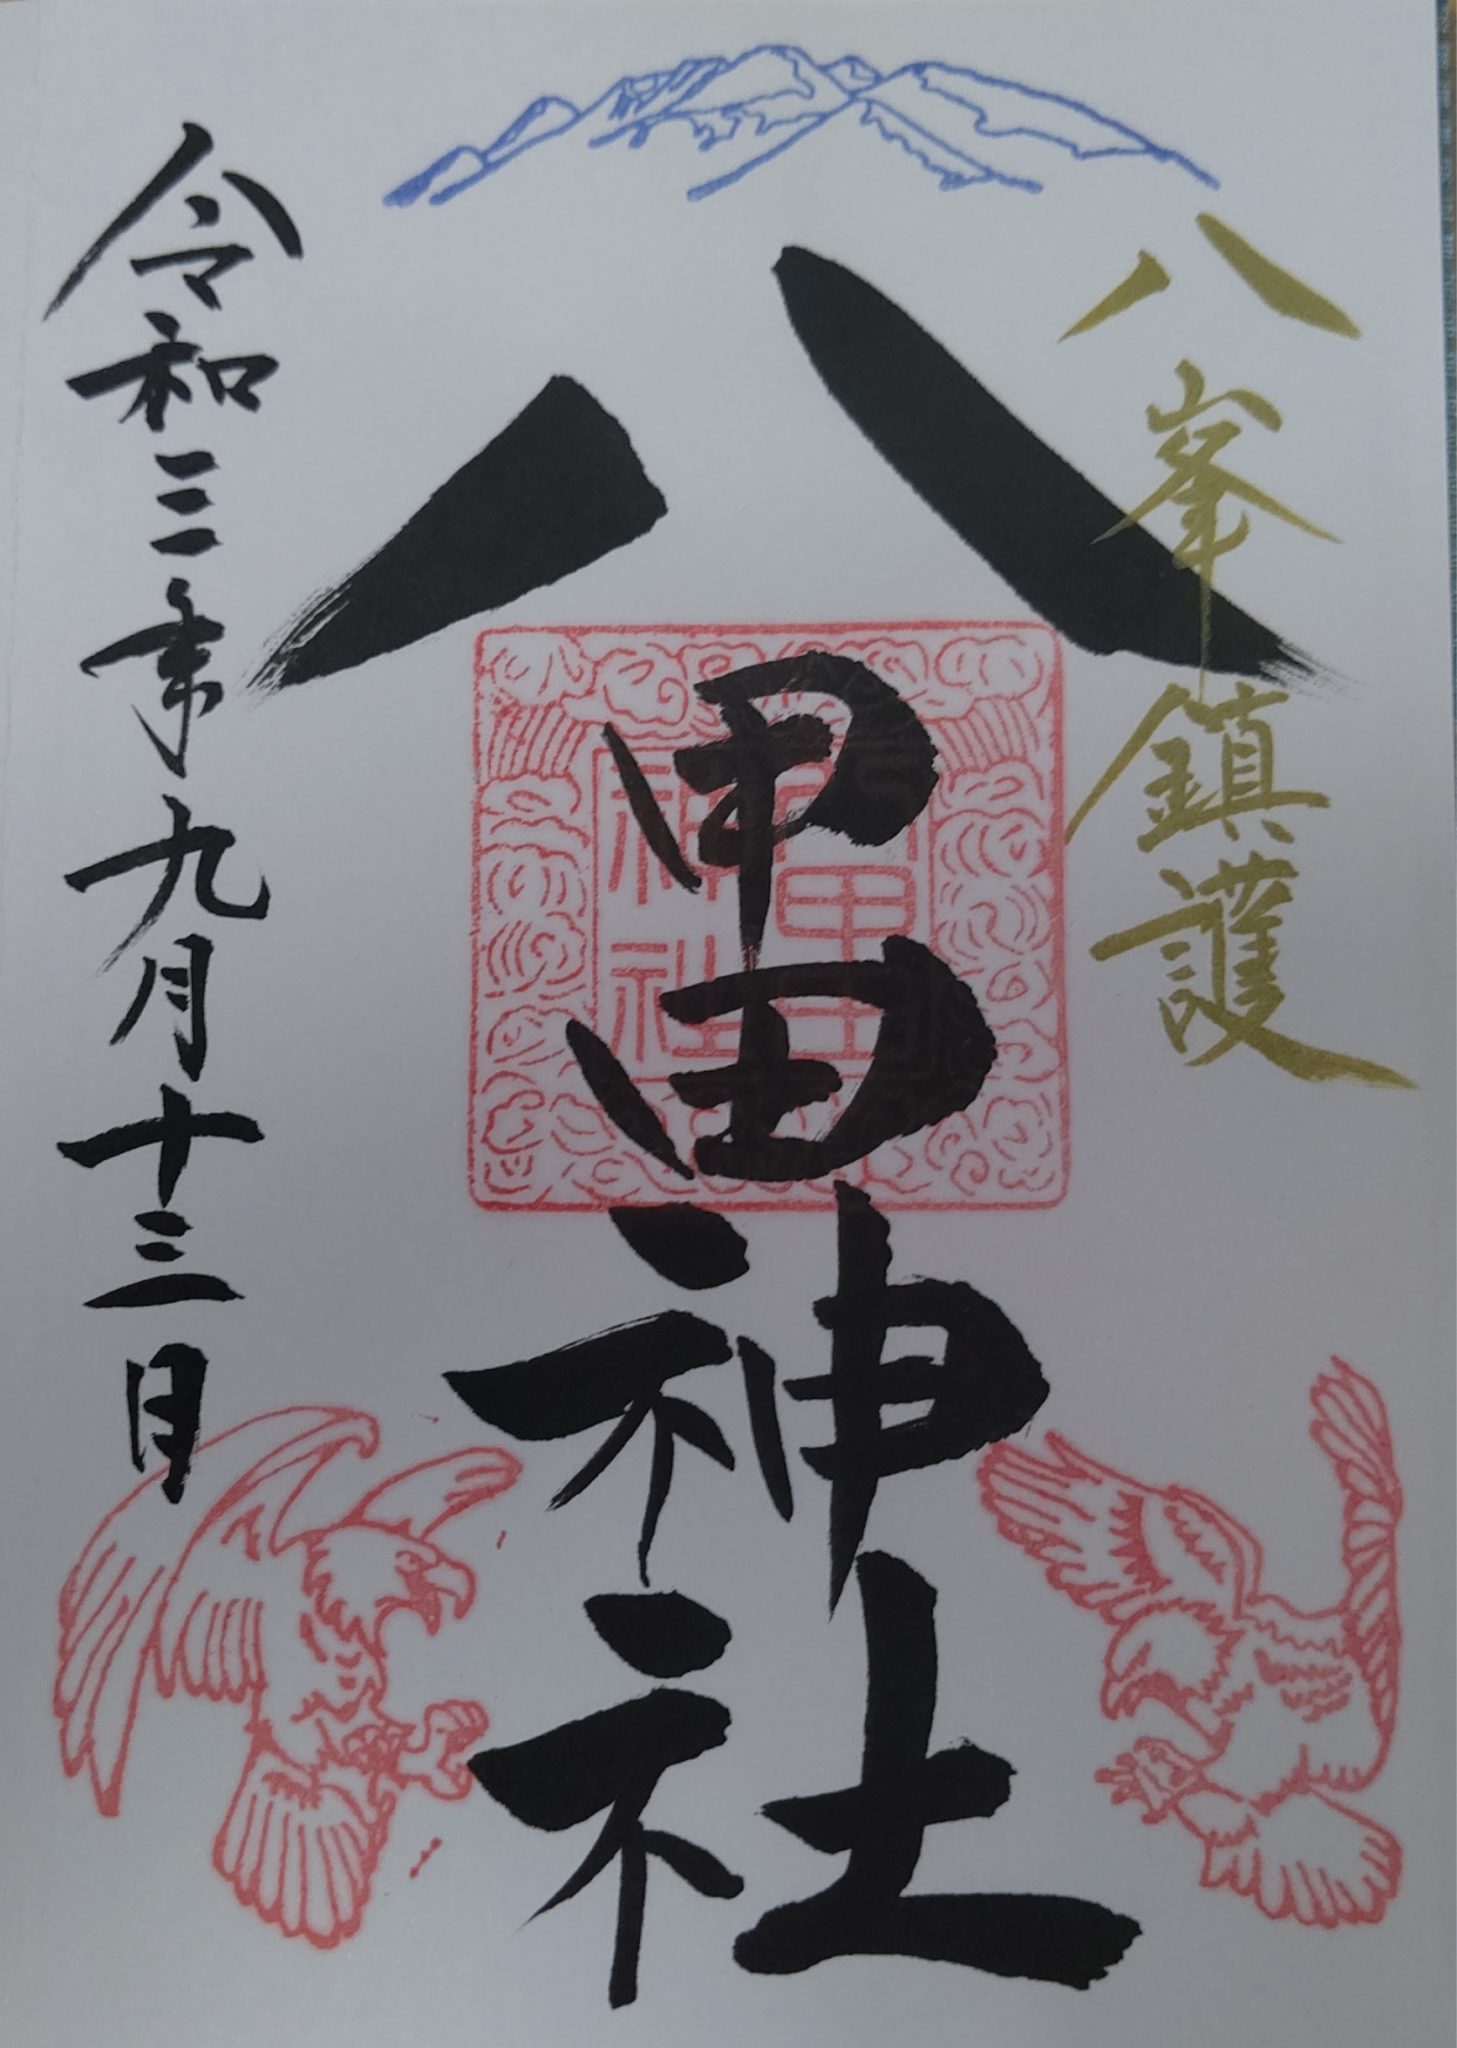 八峯鎮護
八甲田神社
令和三年九月十三日